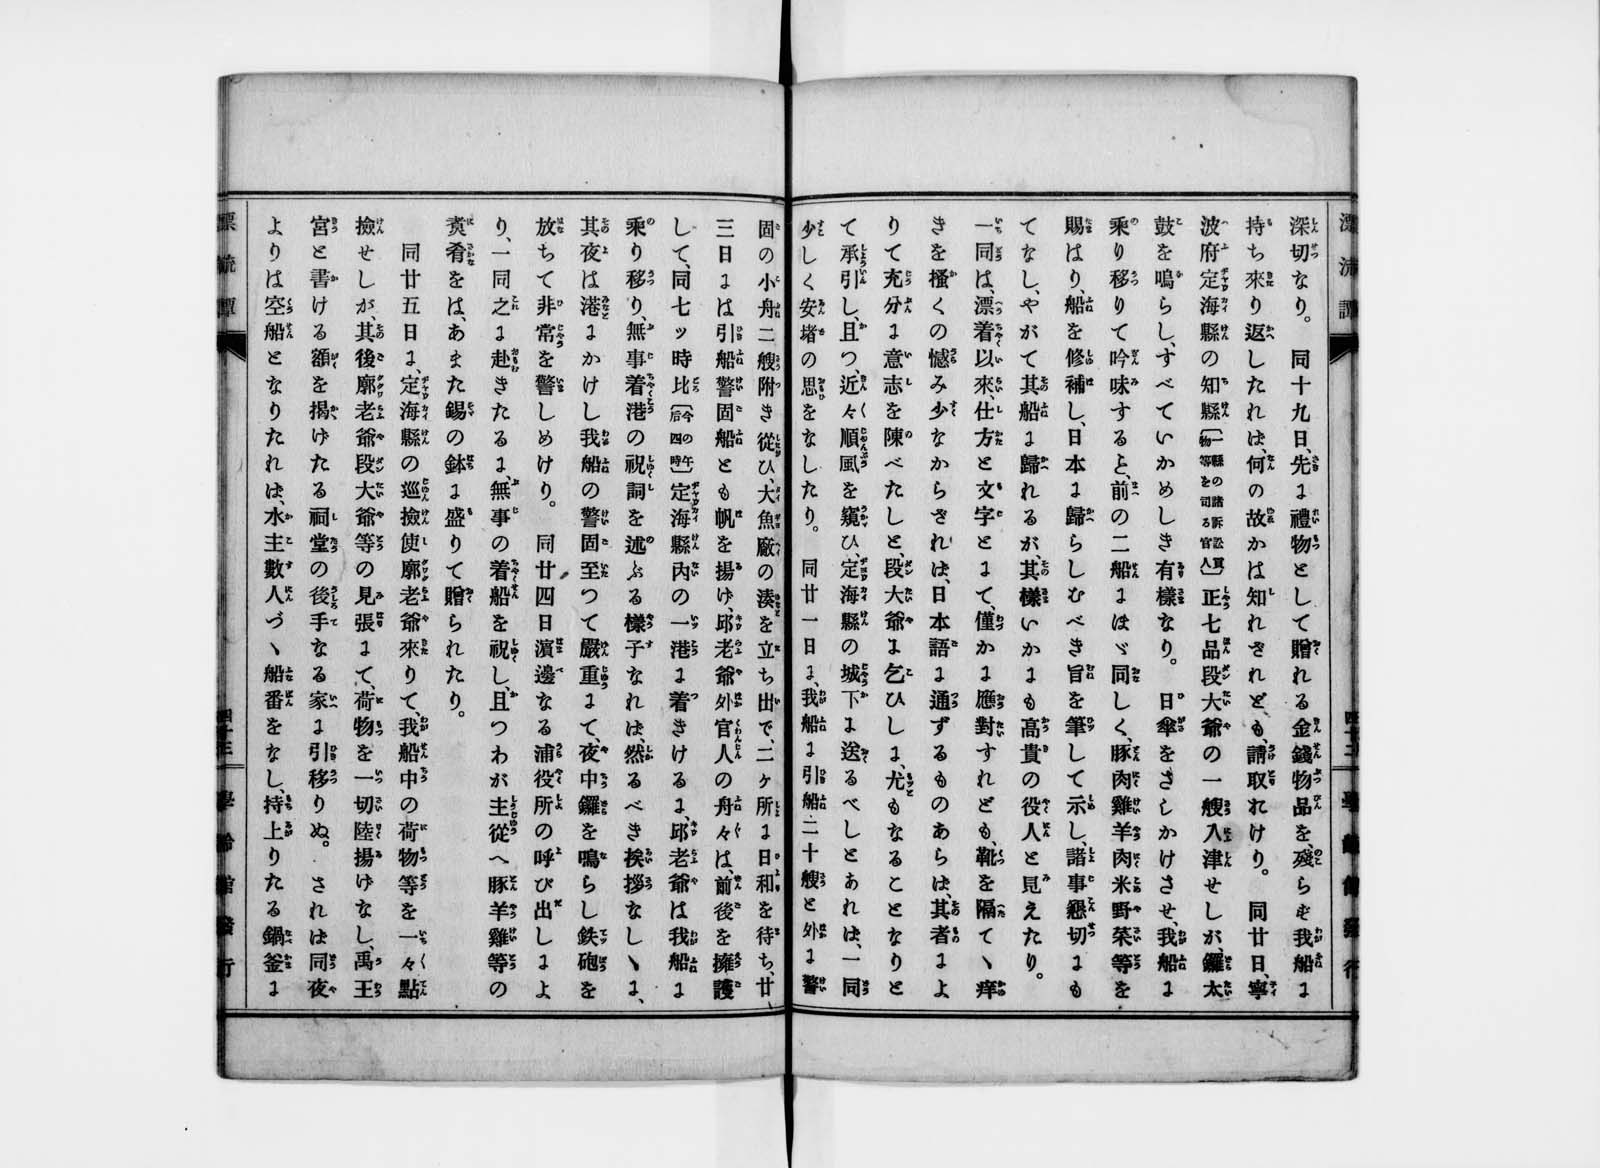 深切なり。同十九日、先に禮物として贈れる金錢物品を、殘らず我船に
持ち來り返したれは、何の故かは知れざれども、請取れけり。同廿日、寧
波府定海縣の知縣〔一縣の諸訴訟買物等を司る官人〕正七品段大爺の一艘入津せしが、鑼太
鼓を鳴らし、すべていかめしき有樣なり。日傘をさしかけさせ、我船に
乘り移りて吟味すると、前の二船にほゞ同しく、豚肉雞羊肉米野菜等を
賜はり、船を修補し、日本に歸らしむべき旨を筆して示し、諸事懇切にも
てなし、やがて其船に歸れるが、其樣いかにも高貴の役人と見えたり。
一同は、漂着以來、仕方と文字とにて、僅かに應對すれども、靴を隔てゝ痒
きを搔くの憾み少なからざれは、日本語に通ずるものあらは、其者によ
りて充分に意志を陳べたしと、段大爺に乞ひしに、尤もなることなりと
て承引し、且つ、近々順風を窺ひ、定海縣の城下に送るべしとあれは、一同
少しく安堵の思をなしたり。同廿一日に、我船に引船二十艘と外に警
固の小舟二艘附き從ひ、大魚廠の湊を立ち出で、二ヶ所に日和を待ち、廿
三日には引船警固船とも帆を揚け、邱老爺外官人の舟々は、前後を擁護
して、同七ッ時比〔今の午后四時〕定海縣內の一港に着きけるに、邱老爺は我船に
乘り移り、無事着港の祝詞を述ぶる樣子なれは、然るべき挨拶なしゝに、
其夜は港にかけし我船の警固至つて嚴重にて、夜中鑼を鳴らし鉄砲を
放ちて非常を警しめけり。同廿四日濱邊なる浦役所の呼び出しによ
り、一同之に赴きたるに、無事の着船を祝し、且つわが主從へ豚羊雞等の
煑肴をは、あまた錫の鉢に盛りて贈られたり。
同廿五日に、定海縣の巡撿使廓老爺來りて、我船中の荷物等を一々點
撿せしが、其後廓老爺段大爺等の見張にて、荷物を一切陸揚けなし、禹王
宮と書ける額を揭げたる祠堂の後手なる家に引移りぬ。されは同夜
よりは空船となりたれは、水主數人づゝ船番をなし、持上りたる鍋釜に